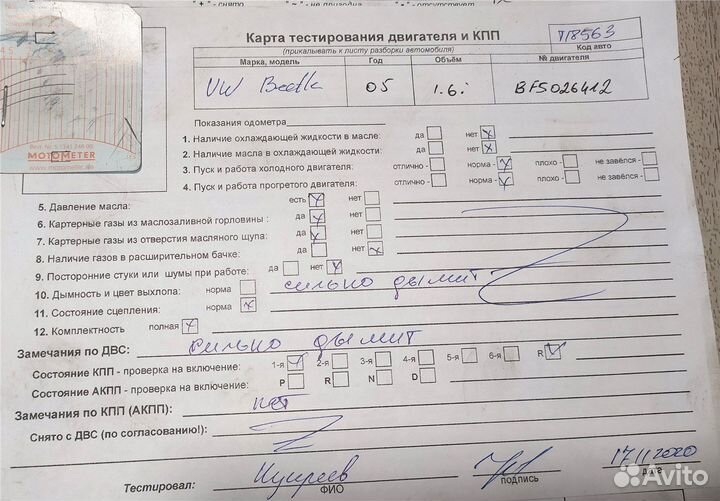 "+" - снято "-" - не пригодна "-" - отсутствует
Карта тестирования двигателя и КПП
(прикалывать к листу разборки автомобиля)
Код авто
Марка, модель Год Объём № двигателя
VW Beetle 05 1.6i BFS026412
Показания одометра
1. Наличие охлаждающей жидкости в масле: да нет
2. Наличие масла в охлаждающей жидкости: да нет
3. Пуск и работа холодного двигателя: отлично - норма - плохо - не завёлся -
4. Пуск и работа прогретого двигателя: отлично - норма - плохо - не завёлся -
5. Давление масла: есть нет
6. Картерные газы из маслозаливной горловины : да нет
7. Картерные газы из отверстия масляного щупа: да нет
8. Наличие газов в расширительном бачке: да нет
9. Посторонние стуки или шумы при работе: да нет
10. Дымность и цвет выхлопа: норма сильно дымит
11. Состояние сцепления: норма
12. Комплектность полная
Замечания по ДВС: сильно дымит
Состояние КПП - проверка на включение: 1-я 2-я 3-я 4-я 5-я 6-я R
Состояние АКПП - проверка на включение: P R N D
Замечания по КПП (АКПП): нет
Снято с ДВС (по согласованию!):
Тестировал: ФИО подпись дата
MOTOMETER
www.motometer.de
Avito